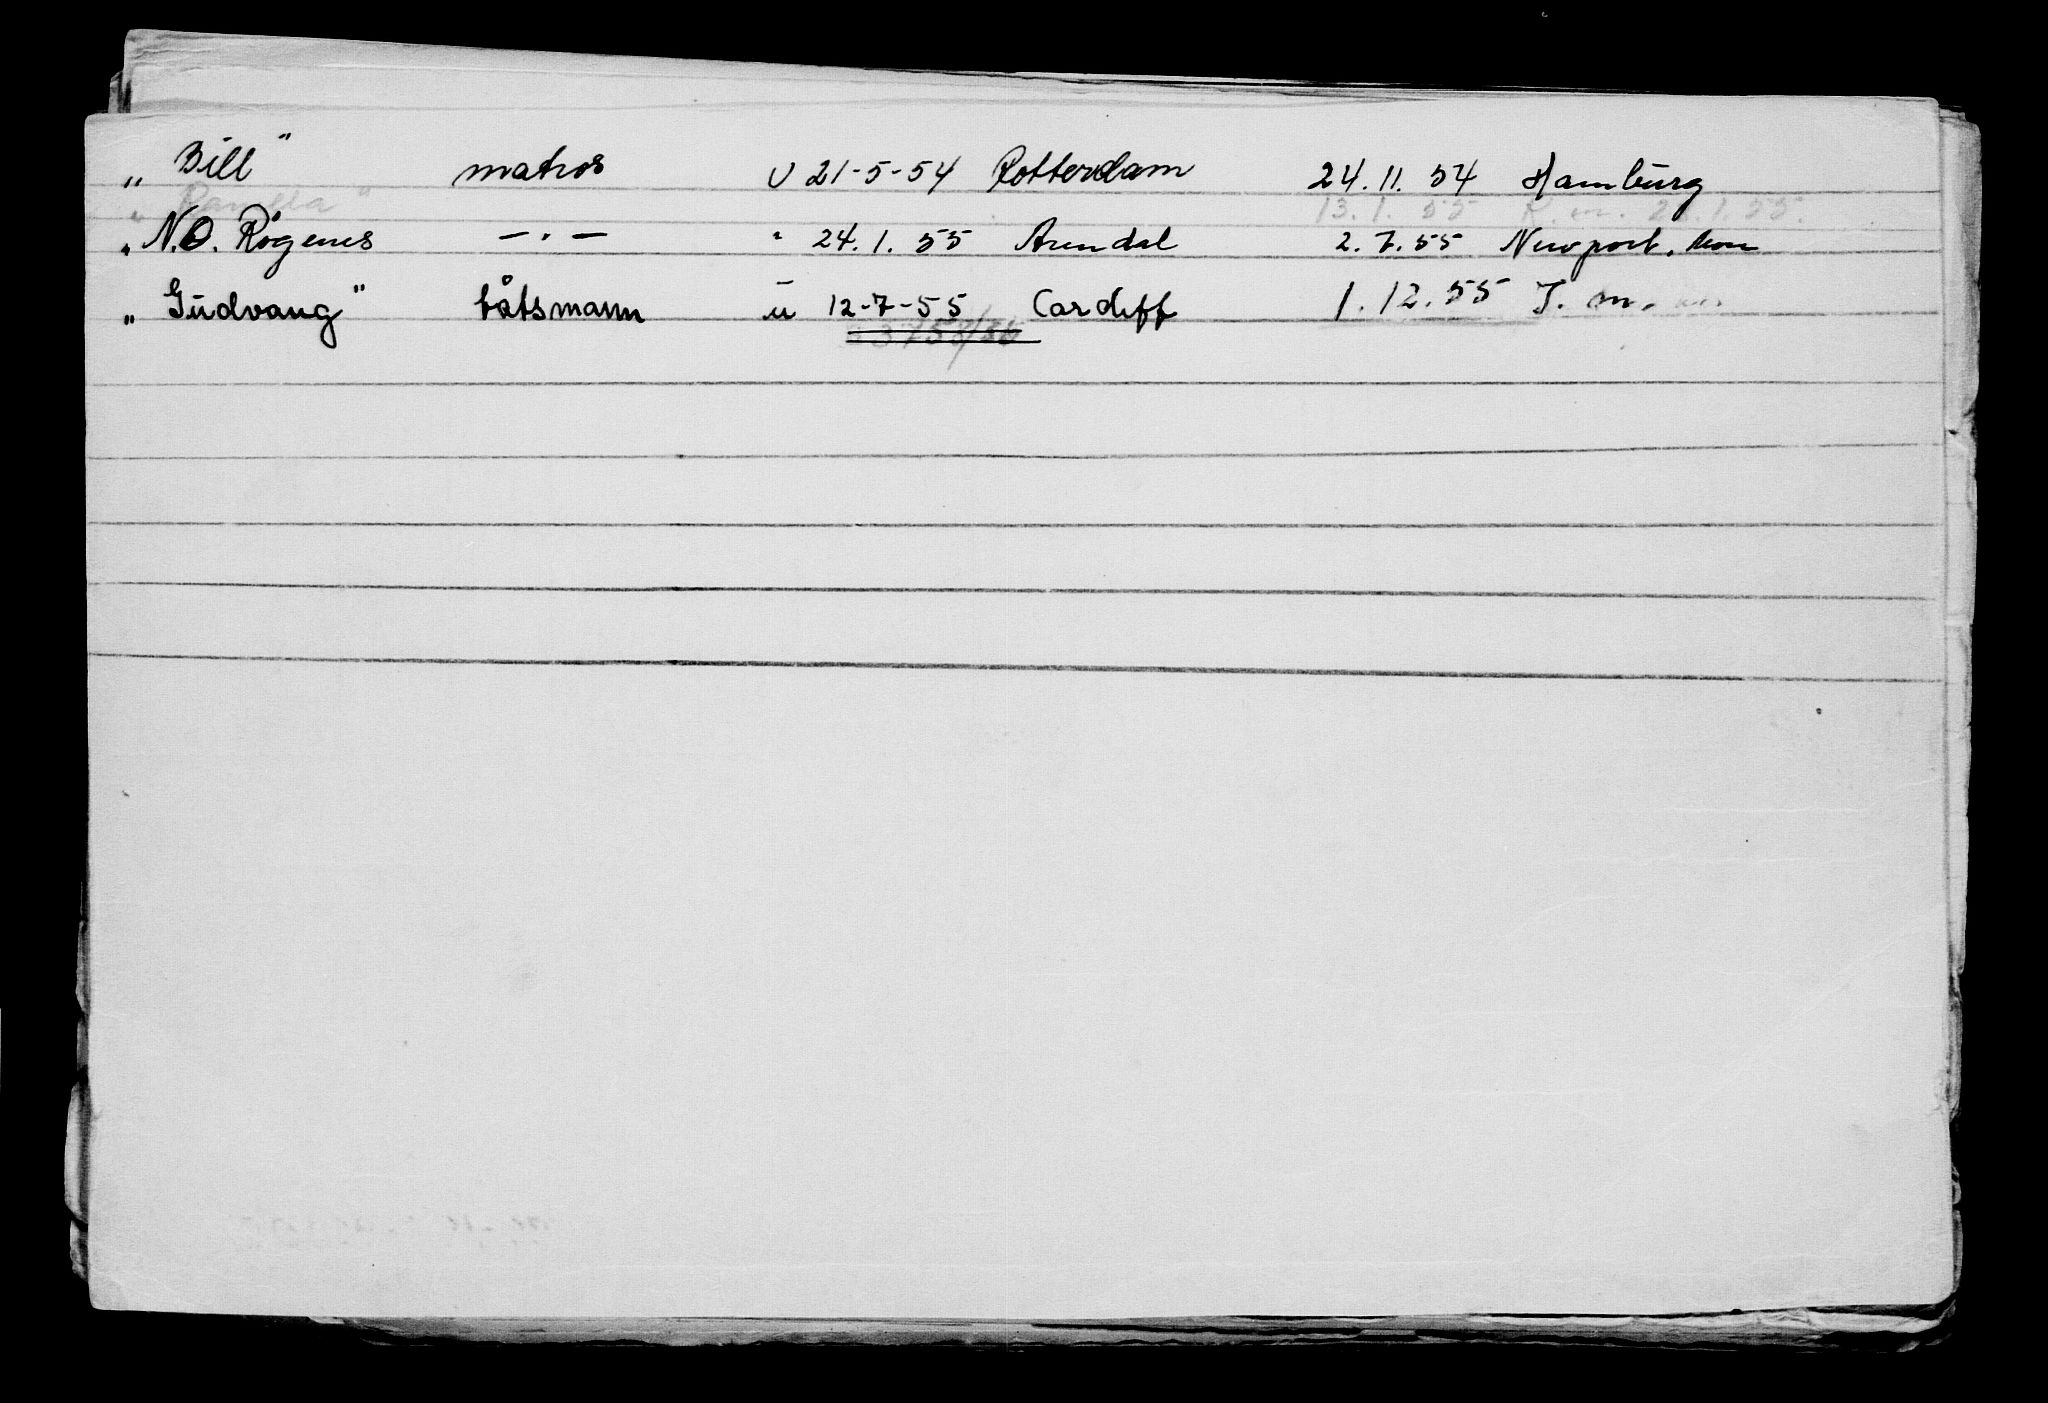 „ Bill" matros u 21-5-54 Rotterdam 24.11.54 Hamburg
„ Ranella" 13.1.55 K.m. 25.1.55.
„ N.O. Røgenes — . — " 24.1.55 Arendal 2.7.55 Newport. Mon
„ Gudvang" båtsmann u 12-7-55 Cardiff 1.12.55 J. m.